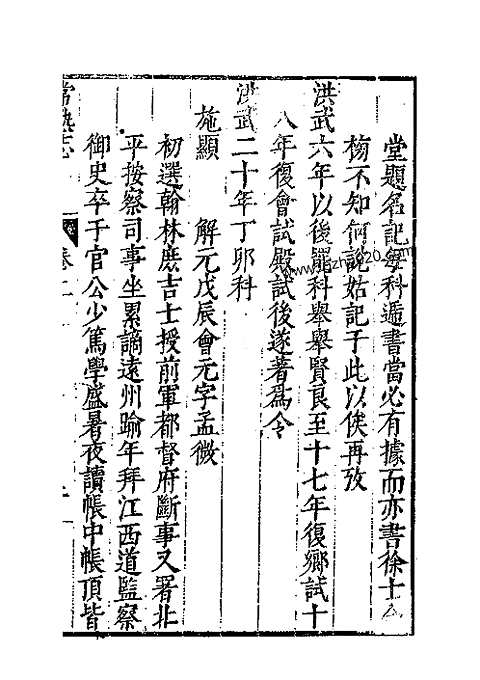 堂題名記每科遞書當必有據而亦書徐士
楊不知何說姑記于此以俟再攷
洪武六年以後罷科舉舉賢良至十七年復鄉試十
八年復會試殿試後遂著爲令
洪武二十年丁卯科
施顯 解元戊辰會元字孟微
初選翰林庶吉士授前軍都督府斷事又署北
平按察司事坐累謫遠州踰年拜江西道監察
御史卒于官公少篤學盛暑夜讀帳中帳頂皆
常熟志 卷二